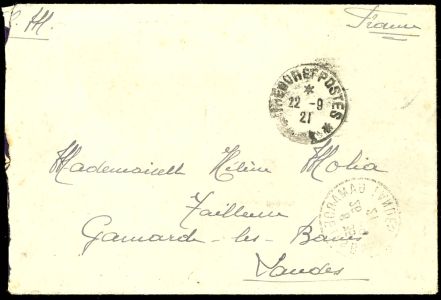 F. M.
France
TRESOR ET POSTES
22 - 9
21
Mademoiselle Hélène Molia
Tailleur
Gamarde-les-Bains
Landes
GAMARDE LANDES